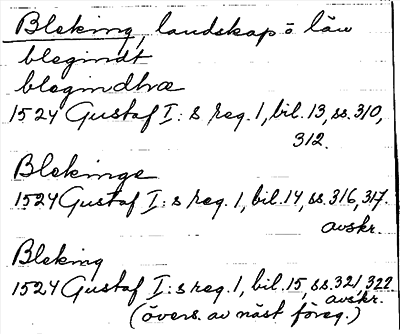 Bleking, landskap o län
blegindt
blegindhæ
1524 Gustaf I:s reg. 1, bil. 13, ss. 310,
312.
Blekinge
1524 Gustaf I:s reg. 1, bil. 14, ss. 316, 317.
avskr.
Bleking
1524 Gustaf I:s reg. 1, bil. 15, ss. 321, 322
avskr.
(övers. av näst föreg.)